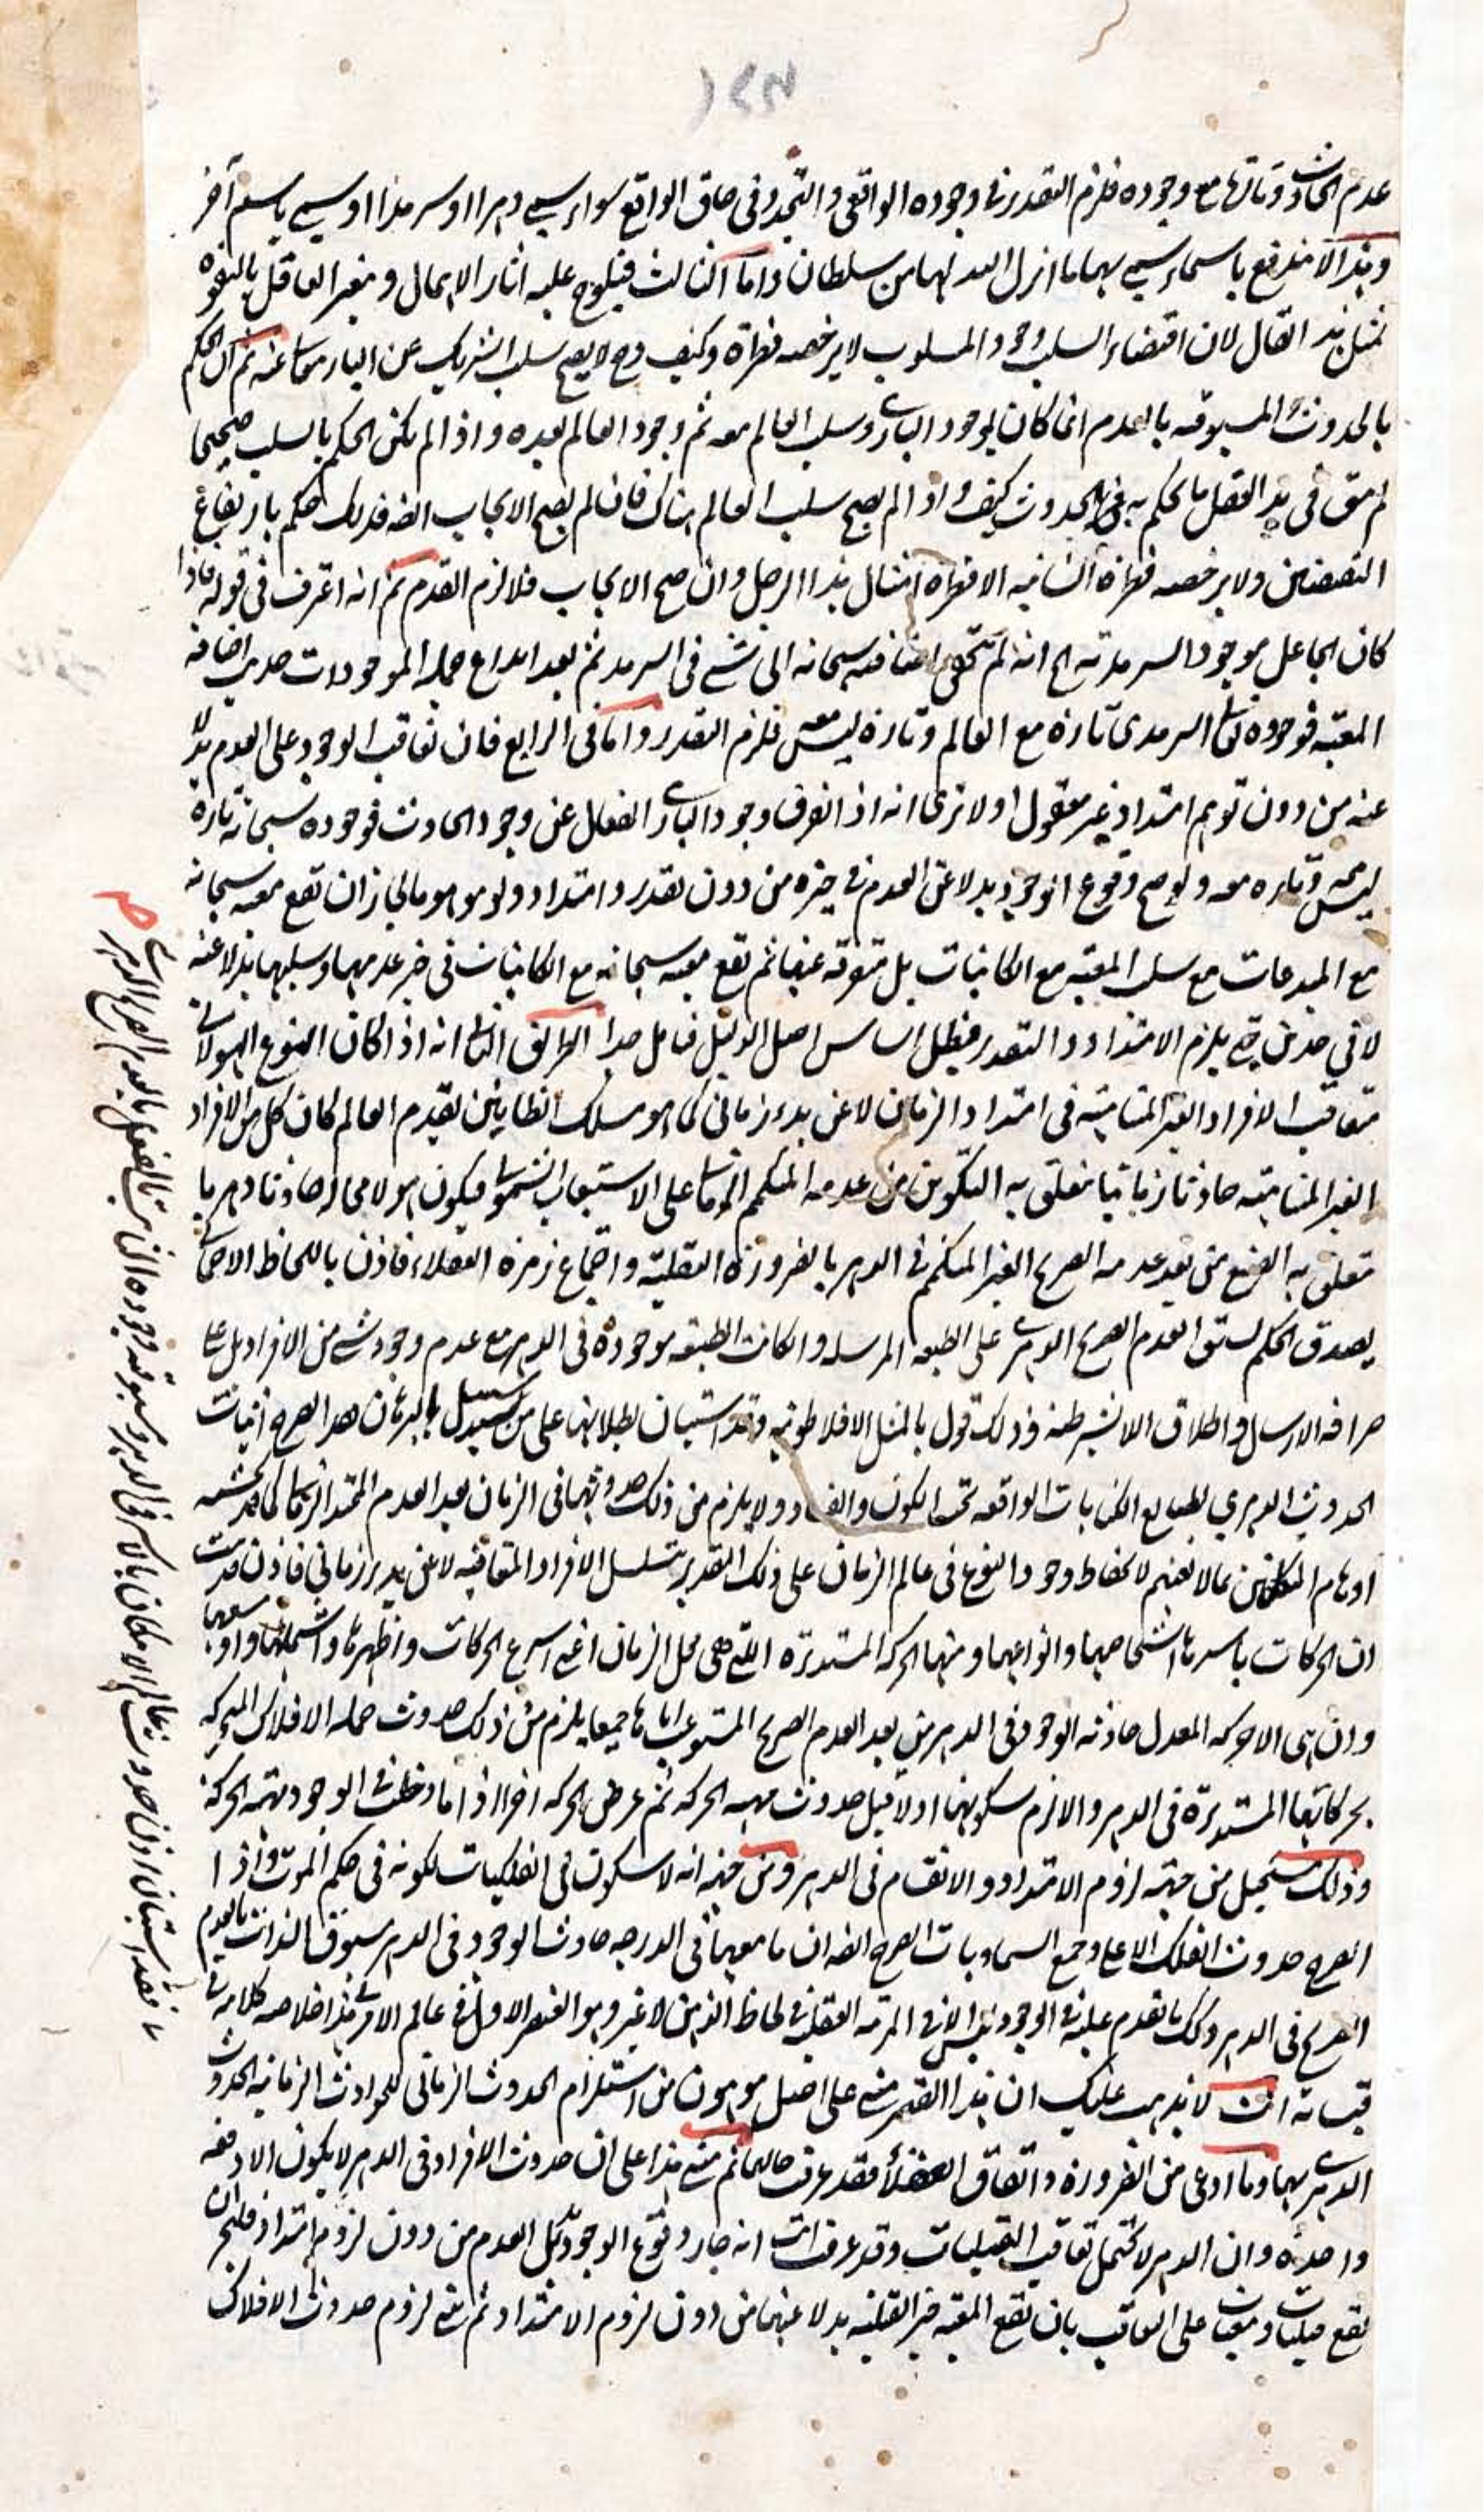 عدم الحادث وتارة مع وجوده فلزم التقدر في وجوده الواقعي والتجدد في حاق الواقع سواء سمي دهرا او سرمدا او سمي باسم آخر
وهذا لا يندفع باسماء سمي بها ما انزل الله بها من سلطان واما الثالث فيلوح عليه اثار الاهمال وغير العاقل بالتفوه
بمثل هذا القال لان اقتضاء السلب وجود المسلوب لا يرخصه فطرة وكيف وح لا يصح سلب الشريك عن الباري تعالى عنه ثم ان الحكم
بالحدوث والمسبوقية بالعدم انما كان لوجود الباري وسلب العالم معه ثم وجود العالم بعده واذا لم يكن الحكم بالسلب صحيحا
لم يبق في يد العقل ما يحكم به في الحدوث كيف واذا لم يصح سلب العالم هناك فان لم يصح الايجاب ايضا فذلك حكم بارتفاع
النقيضين ولا يرخصه فطرة انسانية الا فطرة امثال هذا الرجل وان صح الايجاب فلا لزم القدم ثم انه اعترف في قوله فاذا
كان الجاعل موجودا السرمدية الخ انه لم يتحقق اضافته سبحانه الى شئ في السرمد ثم بعد ابداع جملة الموجودات حدث اضافة
المعية فوجوده تعالى السرمدي تارة مع العالم وتارة ليس معه فلزم التقدر واما في الرابع فان تعاقب الوجود على العدم بدلا
عنه من دون توهم امتداد غير معقول او لا ترى انه اذا انفرق وجود الباري الفعال عن وجود الحادث فوجوده سبحانه تارة
ليس معه وتارة معه ولو صح وقوع الوجود بدلا عن العدم في حيزه من دون تقدر وامتداد ولو موهوما لجاز ان تقع معيته سبحانه
مع المبدعات مع سلب المعية مع الكائنات بل متفوتة عنها ثم تقع معيته سبحانه مع الكائنات في حيز عدمها وسلبها بدلا عنه
لا في حدين حتى يلزم الامتداد والتقدر فبطل اساس اصل الدليل فتأمل جدا الطريق الثاني انه اذا كان النوع الهيولاني
متعاقب الافراد الغير المتناهية في امتداد الزمان لا عن بدء زماني كما هو مسلك القائلين بقدم العالم كان كل من الافراد
الغير المتناهية حادثا زمانيا متعلق به التكوين من عدمه المتكمم الزماني على الاستيعاب الشمولي فيكون هو لا محالة حادثا دهريا
متعلق به الصنع من بعد عدمه الصريح الغير المتكمم في الدهر بالضرورة العقلية واجماع زمرة العقلاء فاذن باللحاظ الاجمالي
يصدق الحكم لسبق العدم الصريح الدهري على الطبيعة المرسلة والا كانت الطبيعة موجودة في الدهر مع عدم وجود شئ من الافراد بل على
صرافة الارسال واطلاق اللا بشرطية وذلك قول بالمثل الافلاطونية وقد استبان بطلانها على من سبيل البرهان هذا الصريح اثبات
الحدوث الدهري لطبايع الكيانيات الواقعة تحت الكون والفساد ولا يلزم من ذلك حدوثها في الزمان بعد العدم الممتد الزماني كما تجشمه
اوهام المتكلفين بما لا يعنيهم لانحفاظ وجود النوع في عالم الزمان على ذلك التقدير بتسلسل الافراد المتعاقبة لا عن بدء زماني فاذن قد ثبت
ان الحركات باسرها اشخاصها وانواعها ومنها الحركة المستديرة التي هي محل الزمان اعني اسرع الحركات واظهرها واشملها واوسعها
وان هي الا حركة المعدل حادثة الوجود في الدهر من بعد العدم الصريح المستوعب اياها جميعا يلزم من ذلك حدوث جملة الافلاك المتحركة
بحركاتها المستديرة في الدهر والا لزم سكونها اولا قبل حدوث مهية الحركة ثم عرض الحركة اخيرا اذا ما دخلت في الوجود مهية الحركة
وذلك مستحيل من جهة لزوم الامتداد والانقسام في الدهر ومن جهة انه لا سكون في الفلكيات لكونه في حكم الموت واذا
الصرح حدوث الفلك الاعلى وجميع السماويات الصرح ايضا ان ما معها في الدرجة حادث الوجود في الدهر مسبوق الذات بالعدم
الصريح في الدهر وكك ما تقدم عليه في الوجود ليس الا في المرتبة العقلية في لحاظ الذهن لا غير وهو العنصر الاول في عالم الامر هذا خلاصة كلامه في
قبساته انت لا يذهب عليك ان هذا القصر منه على اصل موهون من استلزام الحدوث الزماني للحوادث الزمانية الحدوث
الدهري لها وما ادعى من الضرورة واتفاق العقلاء فقد عرفت حالهما ثم مبنى هذا على ان حدوث الافراد في الدهر لا يكون الا دفعة
واحدة وان الدهر لا يحتمل تعاقب القبليات وقد عرفت انه جاز وقوع الوجود بدل العدم من دون لزوم امتداد فليجز ان
يقع قبليات ومعيات على التعاقب بان تقع المعية حيز القبلية بدلا عنها من دون لزوم الامتداد ثم مبنى لزوم حدوث الافلاك